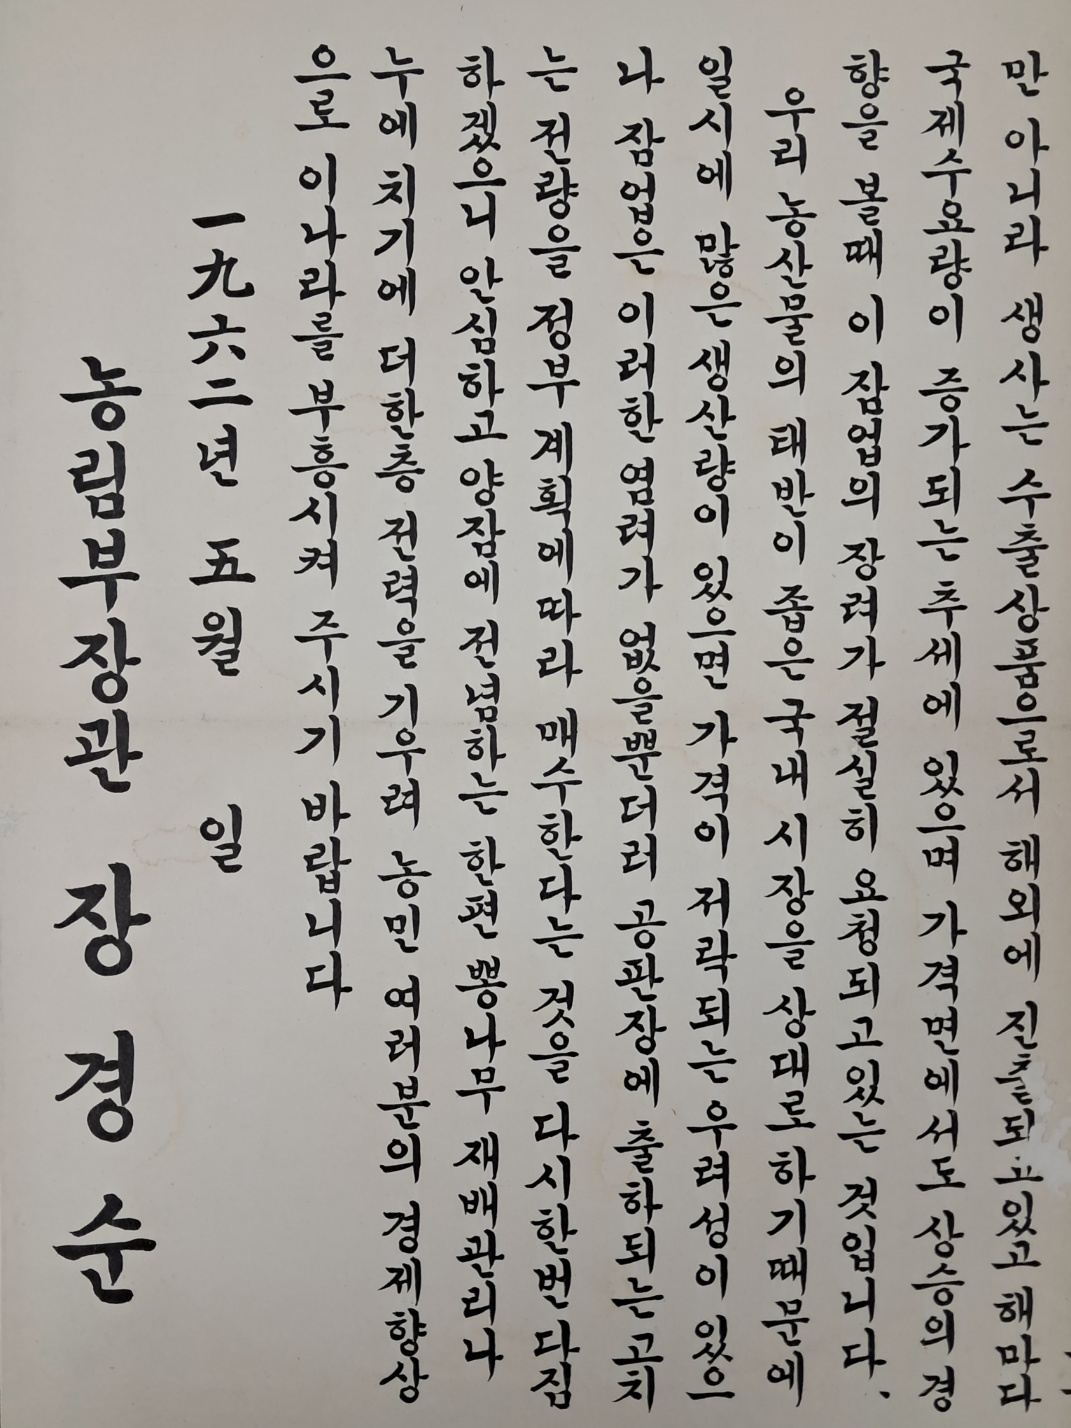 만 아니라 생사는 수출상품으로서 해외에 진출되고있고 해마다
국제수요량이 증가되는 추세에 있으며 가격면에서도 상승의 경
향을 볼때 이 잠업의 장려가 절실히 요청되고있는 것입니다.
우리 농산물의 태반이 좁은 국내 시장을 상대로 하기때문에
일시에 많은 생산량이 있으면 가격이 저락되는 우려성이 있으
나 잠업은 이러한 염려가 없을뿐더러 공판장에 출하되는 고치
는 전량을 정부 계획에 따라 매수한다는 것을 다시한번 다짐
하겠으니 안심하고 양잠에 전념하는 한편 뽕나무 재배관리나
누에 치기에 더한층 전력을 기우려 농민 여러분의 경제향상
으로 이나라를 부흥시켜 주시기 바랍니다
一九六二년 五월 일
농림부장관 장경순